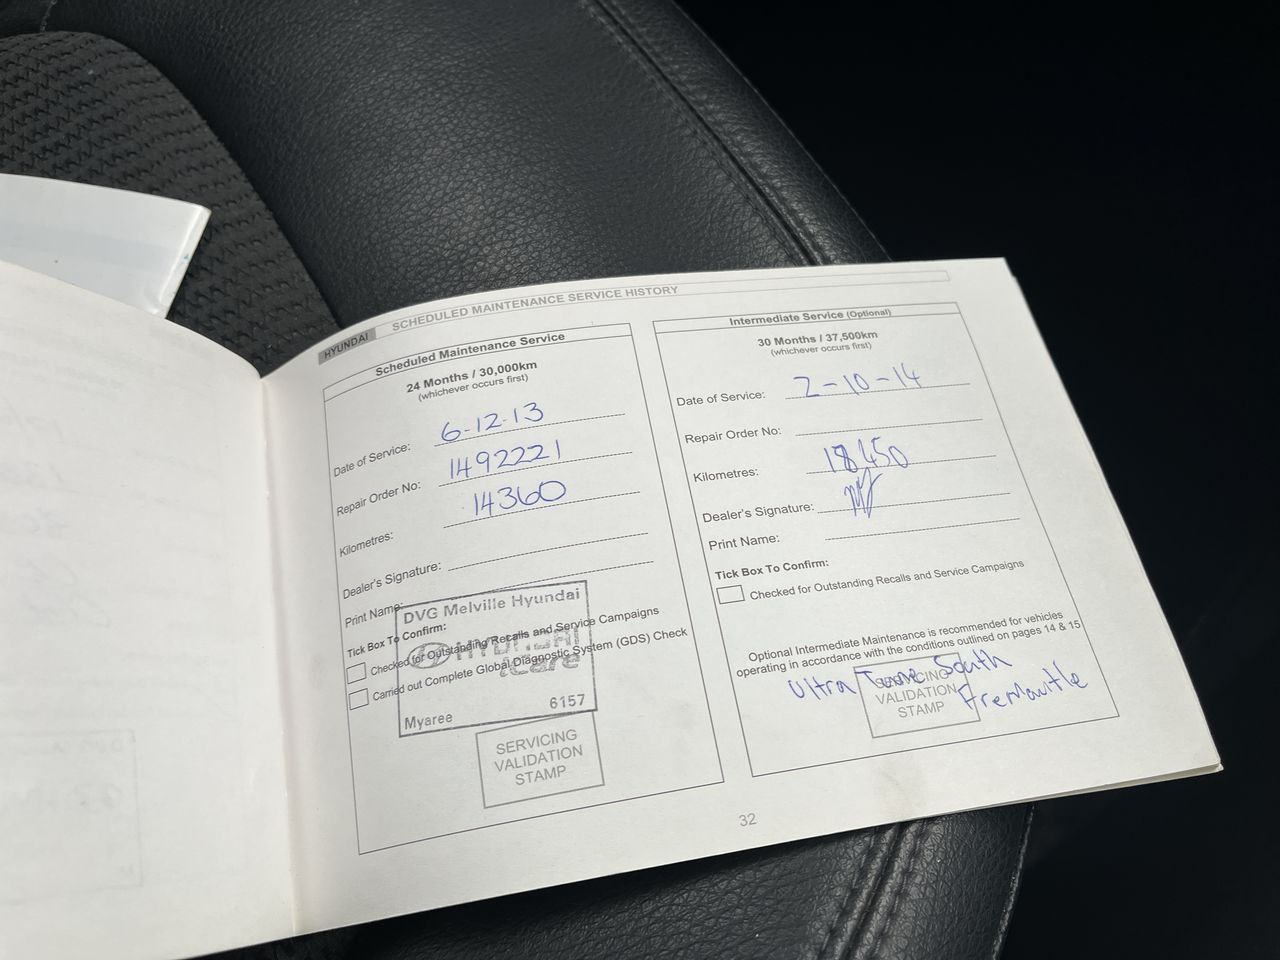 HYUNDAI SCHEDULED MAINTENANCE SERVICE HISTORY
Scheduled Maintenance Service
24 Months / 30,000km
(whichever occurs first)
Date of Service: 6-12-13
Repair Order No: 1492221
Kilometres: 14360
Dealer's Signature:
Print Name:
Tick Box To Confirm:
Checked for Outstanding Recalls and Service Campaigns
Carried out Complete Global Diagnostic System (GDS) Check
DVG Melville Hyundai
HYUNDAI
iCare
Myaree 6157
SERVICING
VALIDATION
STAMP
Intermediate Service (Optional)
30 Months / 37,500km
(whichever occurs first)
Date of Service: 2-10-14
Repair Order No:
Kilometres: 18450
Dealer's Signature:
Print Name:
Tick Box To Confirm:
Checked for Outstanding Recalls and Service Campaigns
Optional Intermediate Maintenance is recommended for vehicles
operating in accordance with the conditions outlined on pages 14 & 15
Ultra Tune South
Fremantle
SERVICING
VALIDATION
STAMP
32